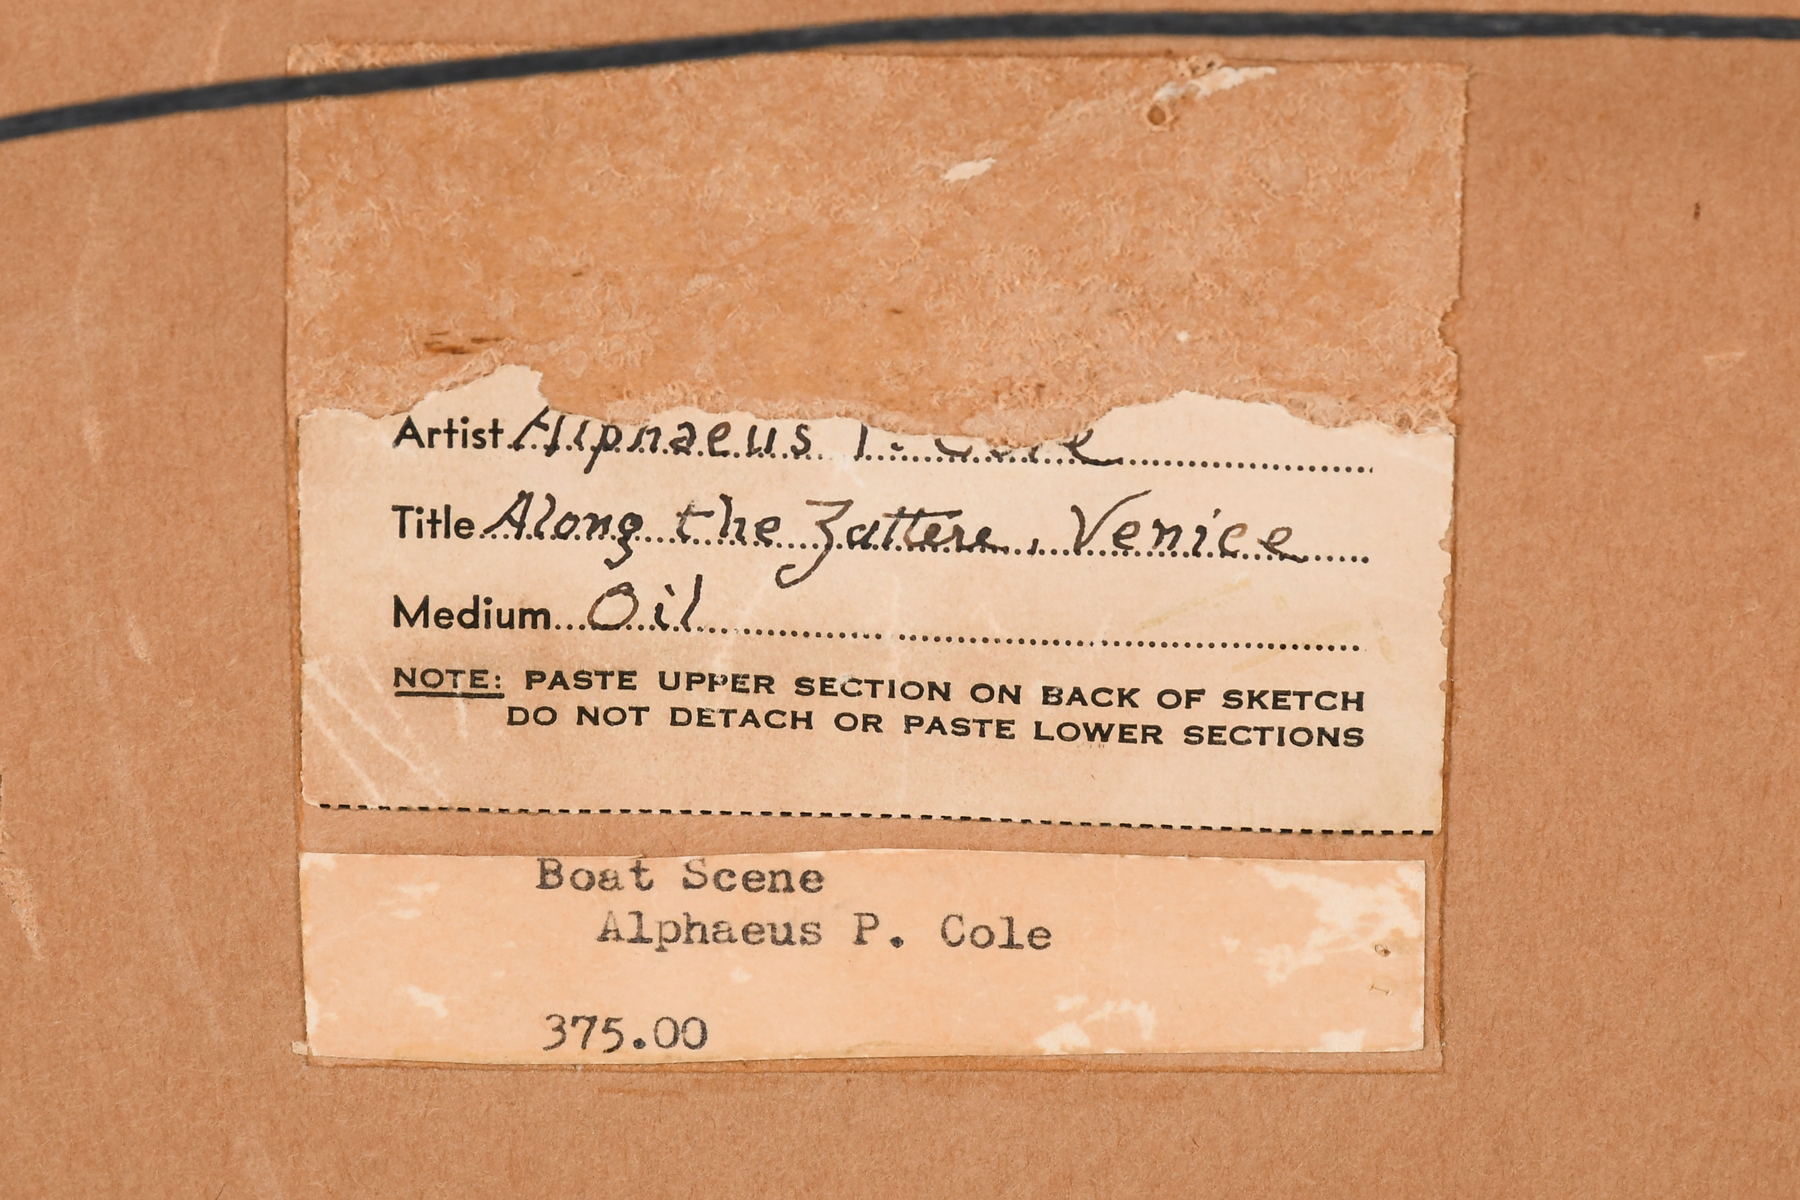 Artist Alphaeus P. Cole
Title Along the Zattere, Venice
Medium Oil
NOTE: PASTE UPPER SECTION ON BACK OF SKETCH
DO NOT DETACH OR PASTE LOWER SECTIONS
Boat Scene
Alphaeus P. Cole
375.00